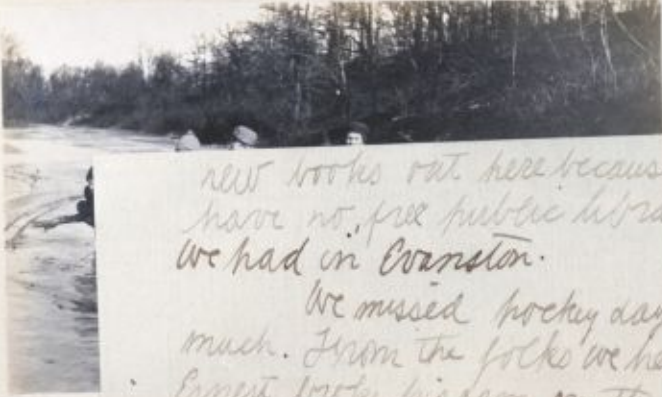 new books out here becaus
have no free public libra
we had in Evanston.
We missed hockey day
much. From the folks we he
Ernest broke his arm on th